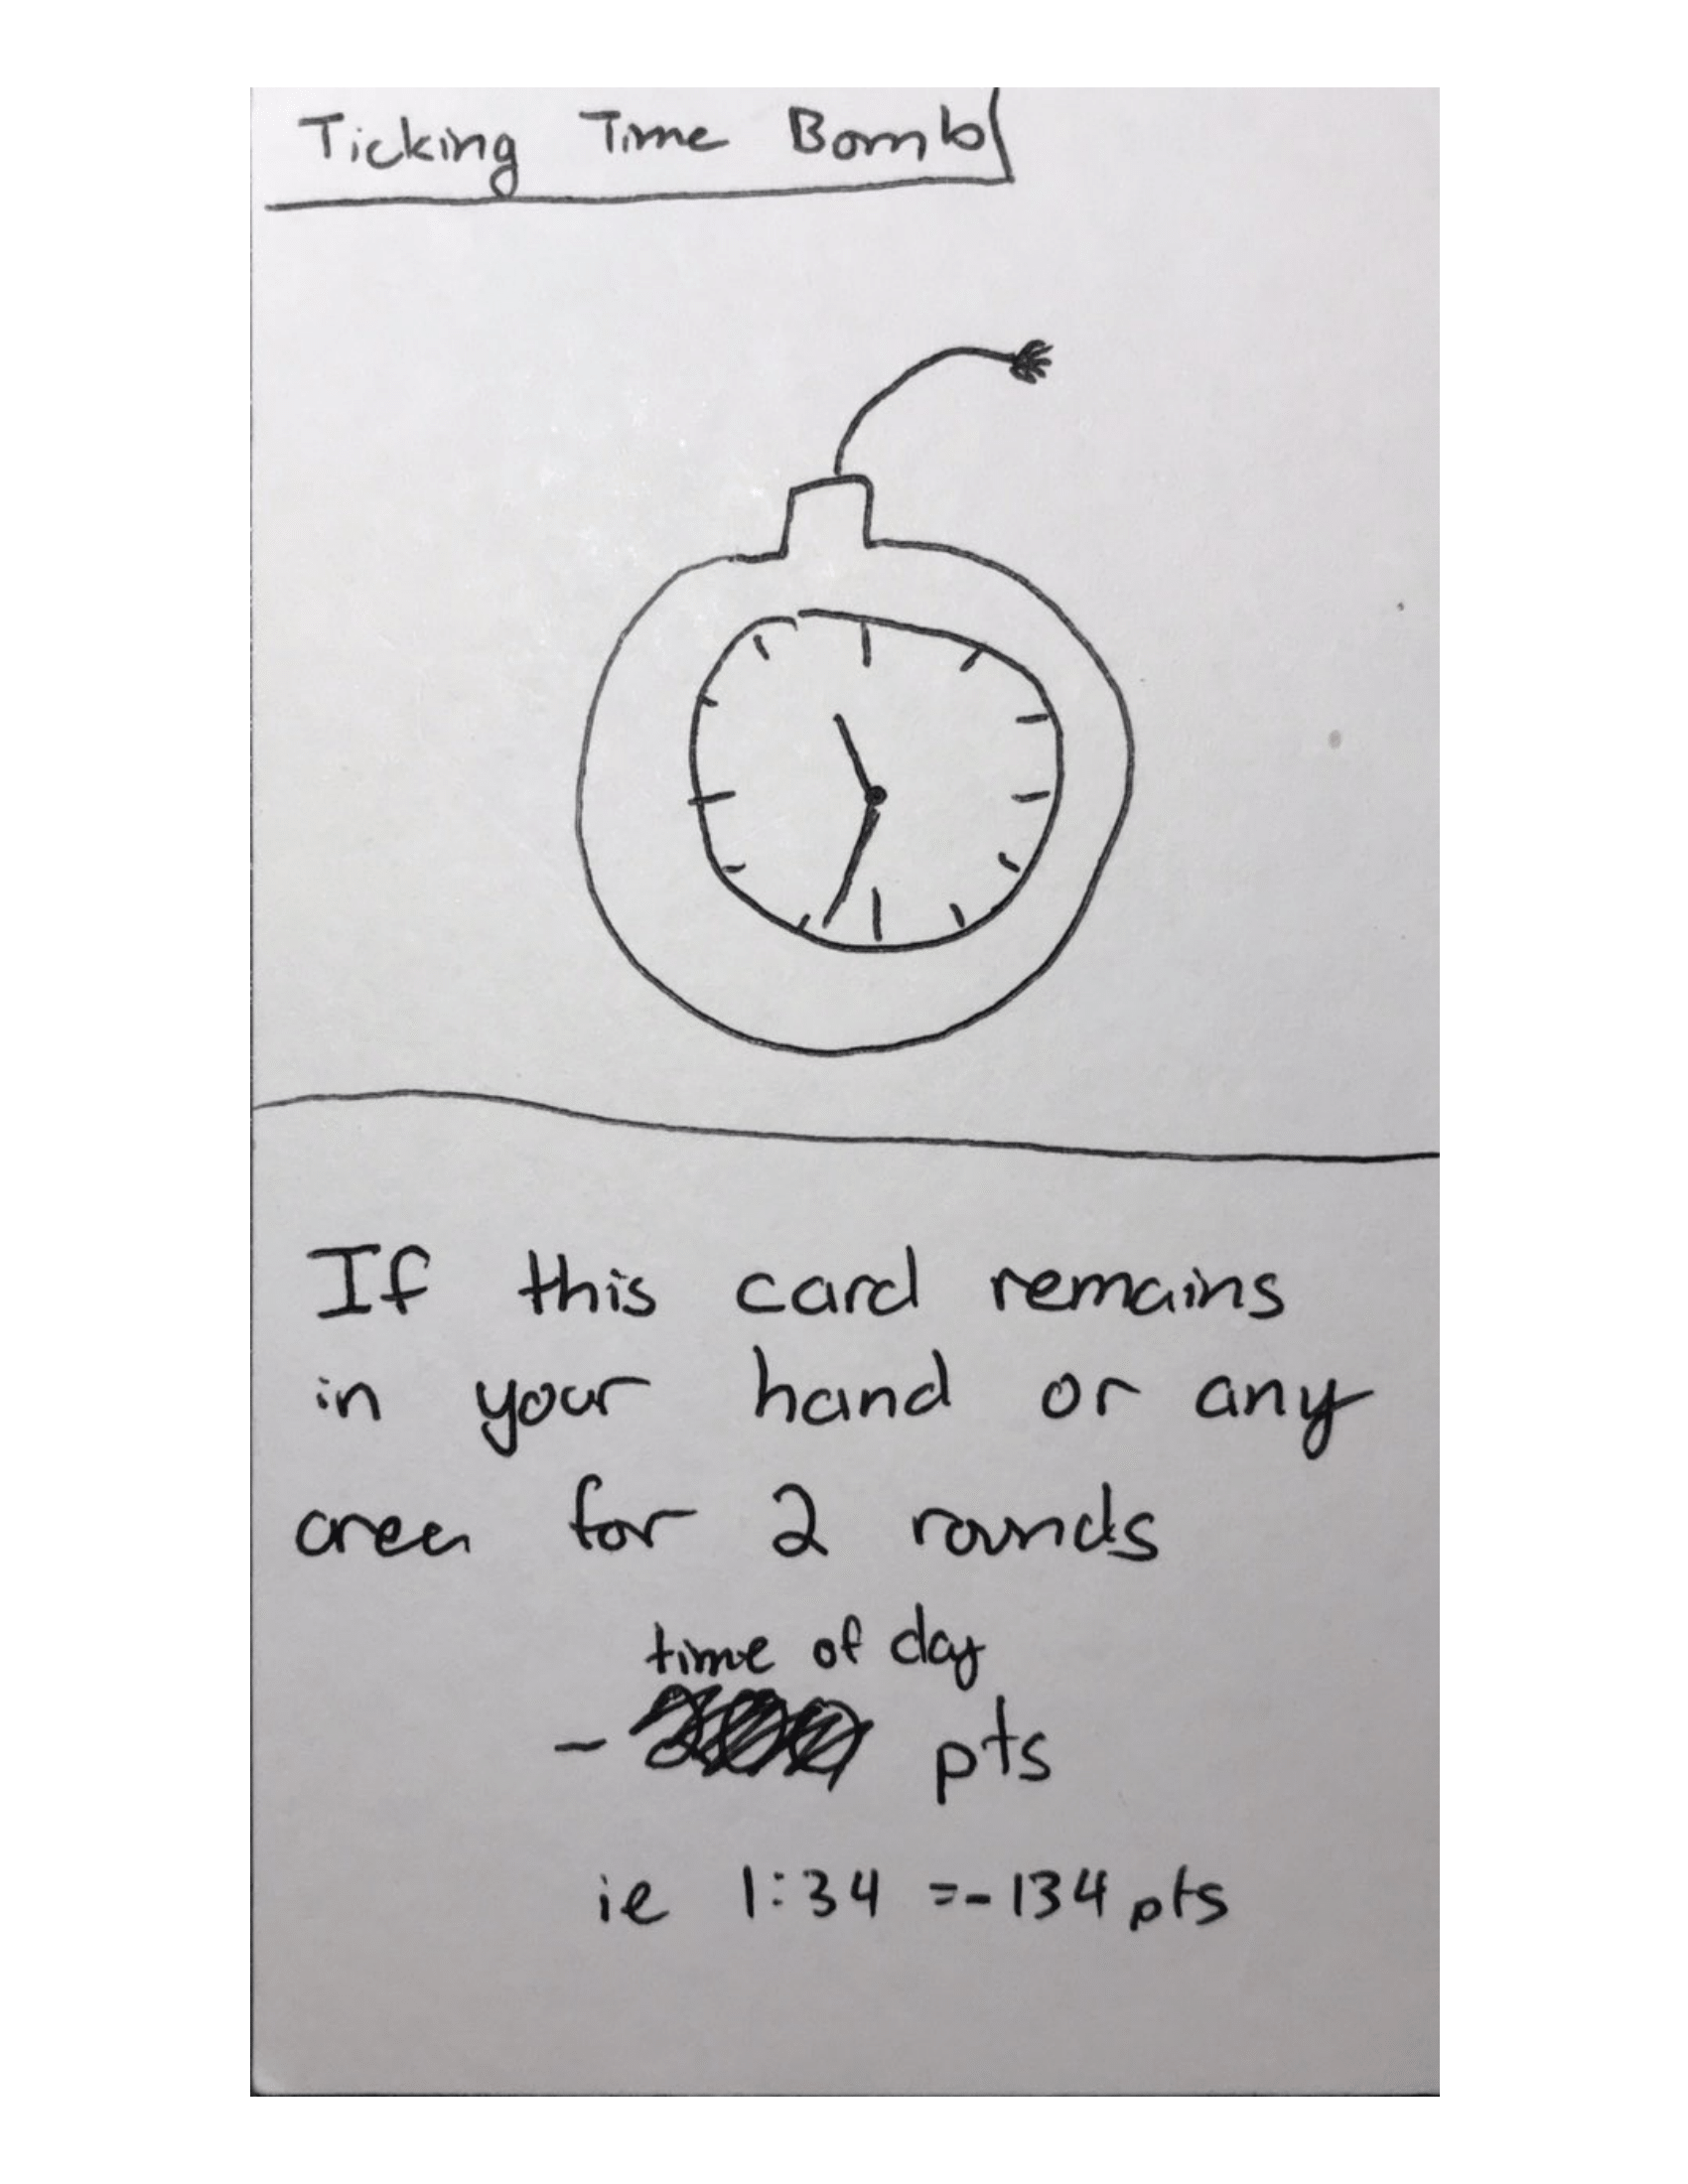 Ticking Time Bomb
If this card remains
in your hand or any
area for 2 rounds
time of day
- pts
ie 1:34 =-134 pts